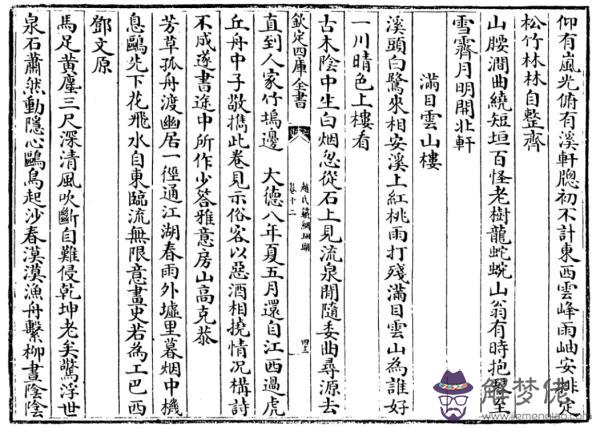 仰有嵐光俯有溪軒牕初不計東西雲峰雨岫安排定
松竹林林自整齊
山腰澗曲繞短垣百怪老樹龍蛇蜿山翁有時抱至
雪霽月明開北軒
滿目雲山樓
溪頭白鷺來相安溪上紅桃雨打殘滿目雲山為誰好
一川晴色上樓看
古木陰中生白烟忽從石上見流泉閒隨委曲尋源去
欽定四庫全書
趙氏鐵網珊瑚
卷十二
四三
直到人家竹塢邊 大德八年夏五月還自江西過虎
丘舟中子敬攜此卷見示俗客以惡酒相撓情況構詩
不成遂書途中所作少答雅意房山高克恭
芳草孤舟渡幽居一徑通江湖春雨外墟里暮烟中機
息鷗先下花飛水自東臨流無限意畫史若為工巴西
鄧文原
馬足黃塵三尺深清風吹斷自難侵乾坤老矣驚浮世
泉石蕭然動隱心鷗鳥起沙春漠漠漁舟繫柳晝陰陰
解梦佬